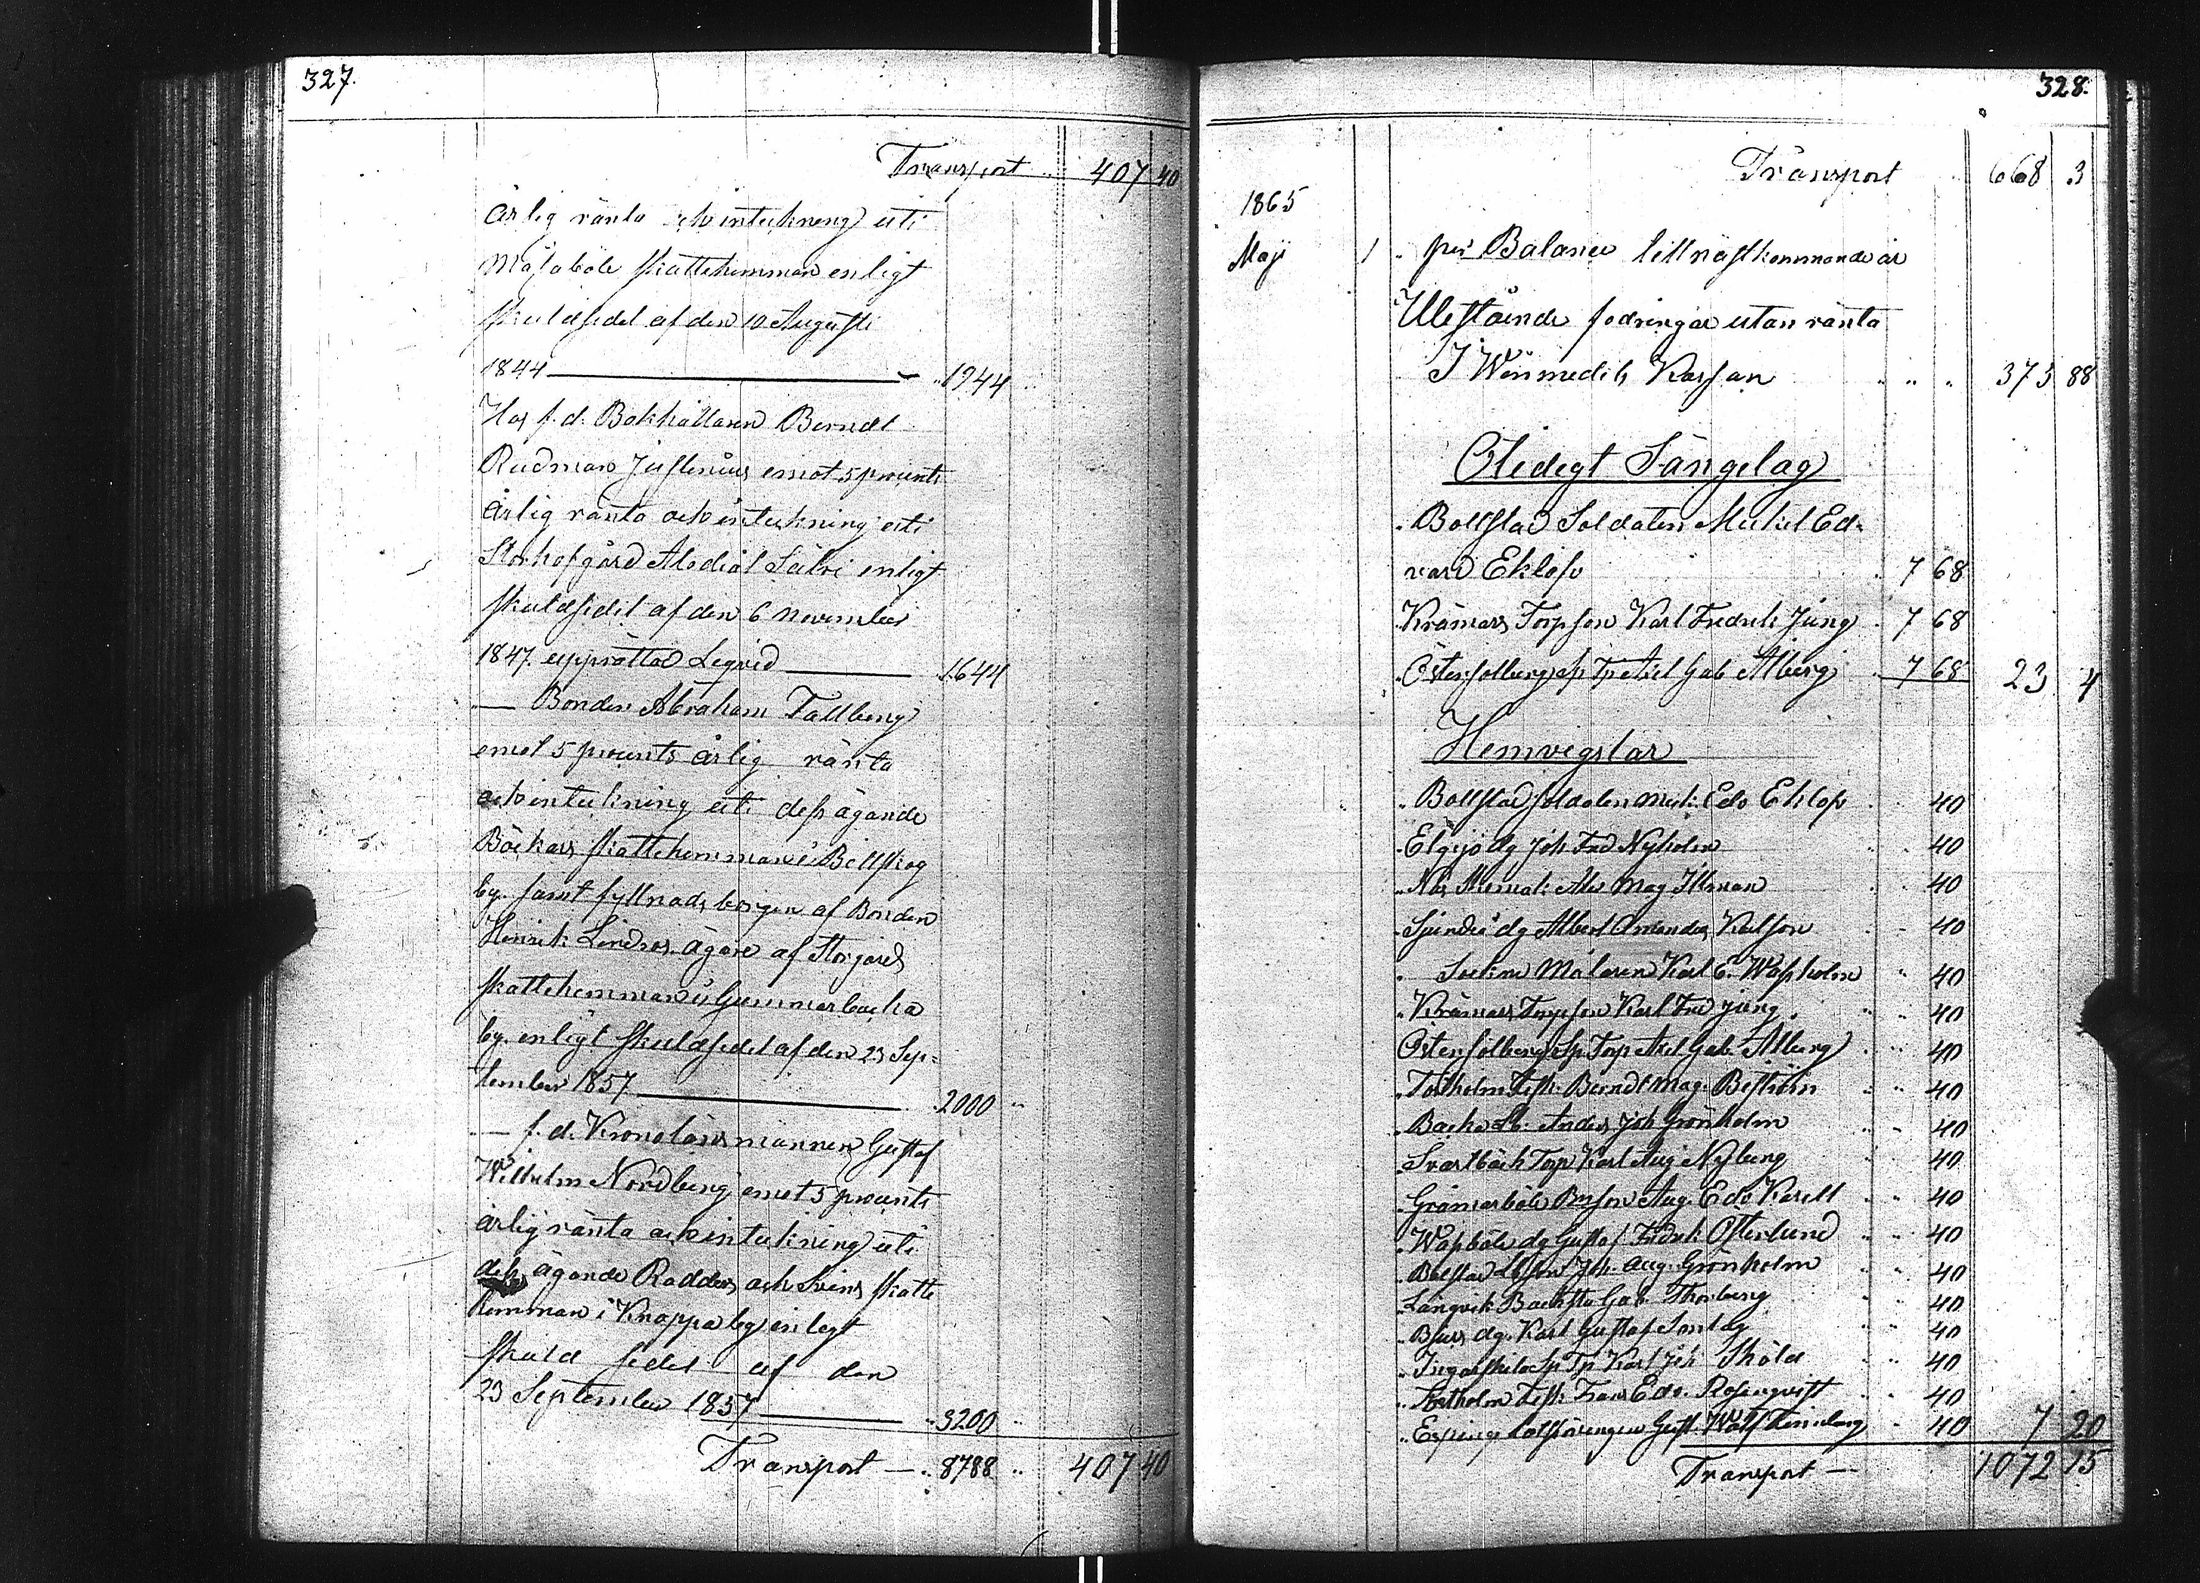 327.
Transport .. 407 40
årlig ränta och inteckning uti
Mosaböle skattehemman enligt
skuldsedel af den 10 Augusti
1844 — .. 1944 ..
Hos f. d. Bokhållaren Berndt
Rudman Juslenius emot 5 procents
årlig ränta och inteckning uti
Storhofgård Alodial Säteri enligt
skuldsedel af den 6 November
1847. upprättad Liqvid — 1.644
— Bonden Abraham Tallberg
emot 5 procents årlig ränta
och inteckning uti dess ägande
Böckars skattehemman i Böllskog
by. samt fyllnads borgen af Bonden
Henrik Lindros. ägare af Storgards
skattehemman i Gummarbacka
by. enligt skuldsedel af den 23 Sep=
tember 1857. — .2000 ..
— f. d. Kronolänsmannen Gustaf
Wilhelm Nordberg emot 5 procents
årlig ränta och inteckning uti
dess ägande Rodders och Svens skatte
hemman i Knappa by enligt
skuld sedel af den
23 September 1857 — .. 3200 ..
Transport — .. 8788 .. 407 40
328.
Transport 668 3
1865
Maji 1 .. per Balance till nästkommande år
Utestående fodringar utan ränta
I Wärmedels Kassan .. .. .. 373 88
Oledigt Sängelag
.. Bollstad Soldaten Mickel Ed=
vard Eklöf .. 7 68
.. Krämars Torpson Karl Fredrik Jung .. 7 68
.. Östersolberg Sp Tp Axel Gab Alberg .. 7 68 23 4
Hemvegslar
.. Bollstad soldaten Mick: Edv Eklöf .. .. 40
.. Elgsjö dg Joh Fred Nyholm .. .. 40
.. Näs Alex Mag Illman .. .. 40
.. dg Albert Amandus Karlson .. .. 40
.. Målaren Karl E. Wassholm .. 40
.. Krämars Torpson Karl Fred Jung. .. .. 40
.. Östersolberg Sp. Torp Axel Gab. Alberg .. .. 40
.. Torholm Berndt Mag. Beströrn .. .. 40
.. Backa Anders Joh Grönholm .. .. 40
.. Svartbäck Torp Karl Aug Nyberg .. .. 40
.. Gränarböle Bnson Aug. Edv Karell .. .. 40
.. Wapböle dg Gustaf Fredrik Österlund .. .. 40
.. Bolstad Joh. Aug. Grönholm .. .. 40
.. Långvik Gab Thorberg .. .. 40
.. Bjurs dg. Karl Gustaf Lontag .. .. 40
.. Ingarskila Sp Tp Karl Joh Sköld .. .. 40
.. Torholm Frans Edv. Rosenqvist .. .. 40
.. Esping Gust. Wilh .. 40 7 20
Transport — 1072 15